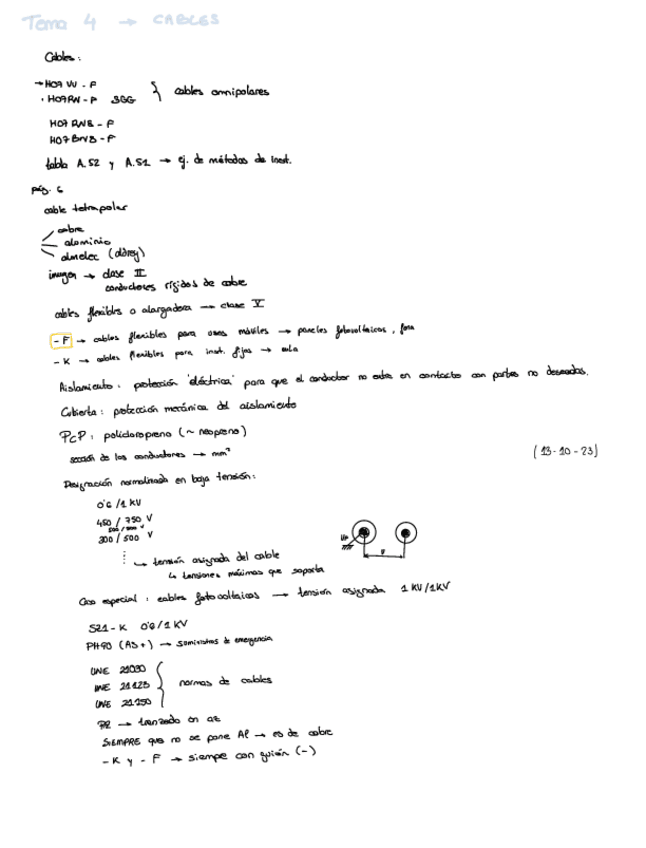 Tema 4 → CABLES
Cables:
→ H07 VV - F
· H07RN - F 3GG } cables omnipolares
H07 RN8 - F
H07 BN8 - F
tabla A.52 y A.51 → ej. de métodos de inst.
pág. 6
cable tetrapolar
cobre
aluminio
almelec (aldrey)
imagen → clase II
conductores rígidos de cobre
cables flexibles o alargadora → clase V
- F → cables flexibles para usos móviles → paneles fotovoltaicos,
- K → cables flexibles para inst. fijas → aula
Aislamiento: protección 'eléctrica' para que el conductor no entre en contacto con partes no deseadas.
Cubierta: protección mecánica del aislamiento
PCP: policloropreno (~ neopreno)
sección de los conductores → mm²
(13-10-23)
Designación normalizada en baja tensión:
0'6 /1 KV
450 / 750 V
300 / 500 V
⋮ → tensión asignada del cable
↳ tensiones máximas que soporta
Caso especial: cables fotovoltaicos → tensión asignada 1 KV/1KV
SZ1-K 0'6/1 KV
PH90 (AS+) → suministros de emergencia
UNE 21030
UNE 21123 } normas de cables
UNE 21150
RZ → trenzado en
SIEMPRE que no se pone Al → es de cobre
- K y - F → siempre con guión (-)